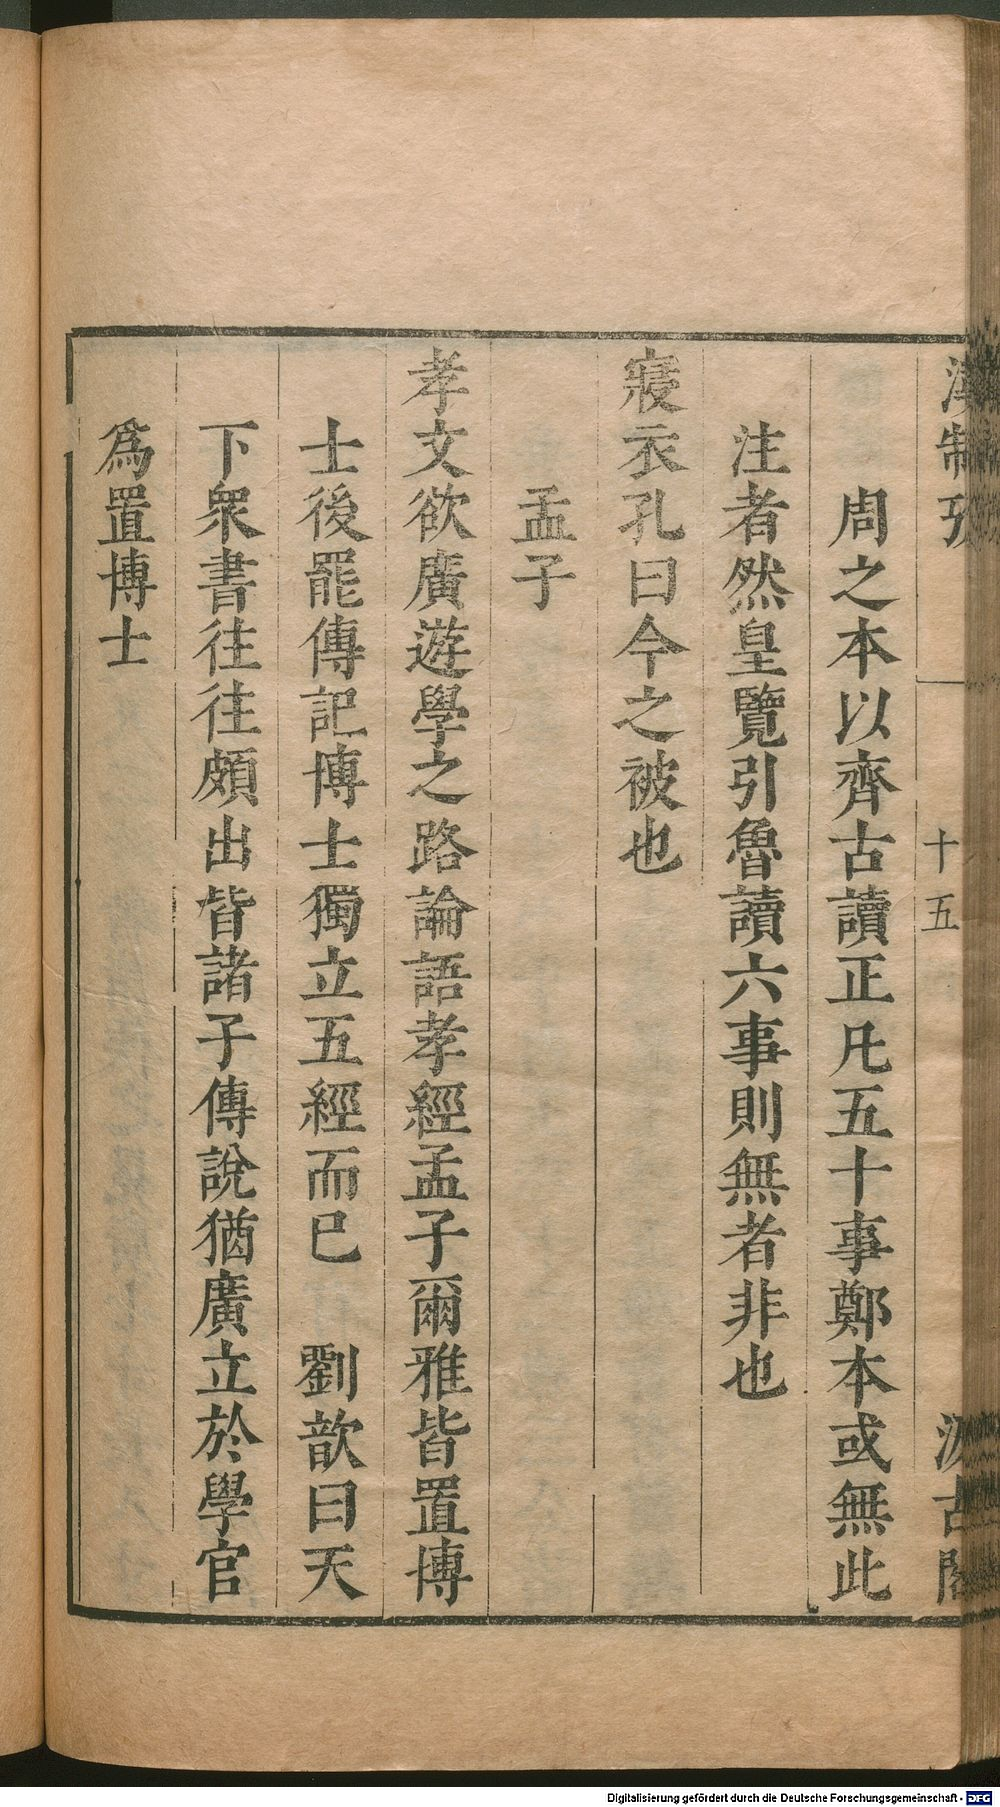 漢制攷 十五 汲古閣
周之本以齊古讀正凡五十事鄭本或無此
注者然皇覽引魯讀六事則無者非也
寢衣孔曰今之被也
孟子
孝文欲廣遊學之路論語孝經孟子爾雅皆置博
士後罷傳記博士獨立五經而已 劉歆曰天
下衆書往往頗出皆諸子傳說猶廣立於學官
爲置博士
Digitalisierung gefördert durch die Deutsche Forschungsgemeinschaft - DFG